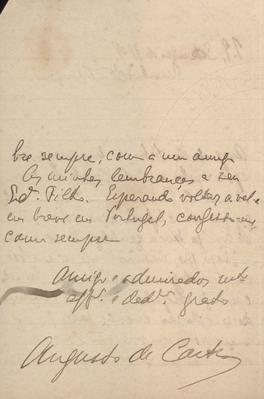 bre sempre, como a um amigo
As minhas lembranças a seu
Ed.º Filho. Esperando voltar a vel-o
em breve em Portugal, 
como sempre
Amigo e admirador mto
affº. e dedº. grato
Augusto de Castro